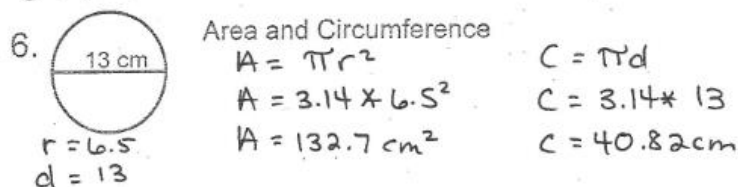 6.
13 cm
r = 6.5
d = 13
Area and Circumference
A = πr²
A = 3.14 * 6.5²
A = 132.7 cm²
C = πd
C = 3.14* 13
C = 40.82cm